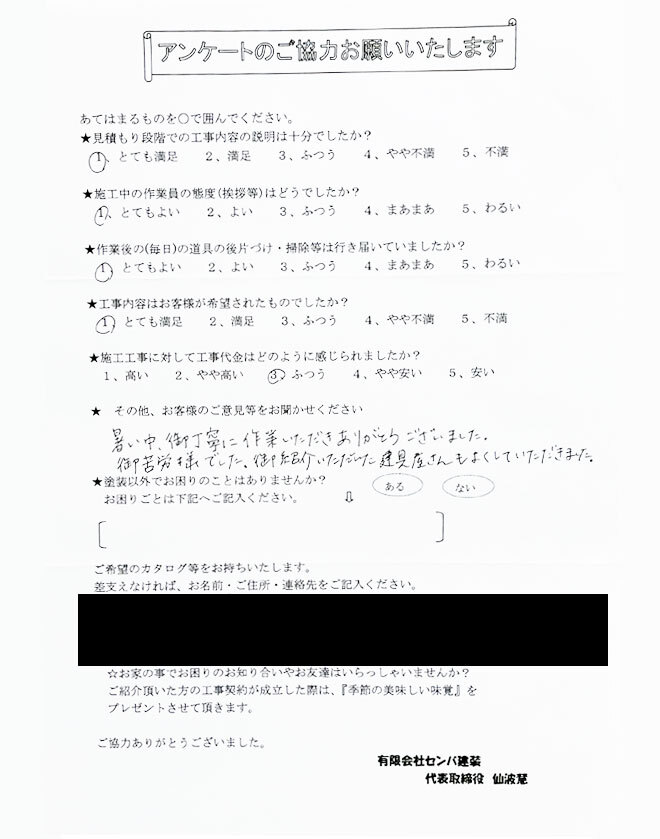 アンケートのご協力お願いいたします
あてはまるものを○で囲んでください。
★見積もり段階での工事内容の説明は十分でしたか？
1、とても満足 2、満足 3、ふつう 4、やや不満 5、不満
★施工中の作業員の態度(挨拶等)はどうでしたか？
1、とてもよい 2、よい 3、ふつう 4、まあまあ 5、わるい
★作業後の(毎日)の道具の後片づけ・掃除等は行き届いていましたか？
1、とてもよい 2、よい 3、ふつう 4、まあまあ 5、わるい
★工事内容はお客様が希望されたものでしたか？
1、とても満足 2、満足 3、ふつう 4、やや不満 5、不満
★施工工事に対して工事代金はどのように感じられましたか？
1、高い 2、やや高い 3、ふつう 4、やや安い 5、安い
★ その他、お客様のご意見等をお聞かせください
暑い中、御丁寧に作業いただきありがとうございました。
御苦労様でした、御紹介いただいた建具屋さんもよくしていただきました。
★塗装以外でお困りのことはありませんか？ ある ない
お困りごとは下記へご記入ください。 ⇩
ご希望のカタログ等をお持ちいたします。
差支えなければ、お名前・ご住所・連絡先をご記入ください。
☆お家の事でお困りのお知り合いやお友達はいらっしゃいませんか？
ご紹介頂いた方の工事契約が成立した際は、『季節の美味しい味覚』を
プレゼントさせて頂きます。
ご協力ありがとうございました。
有限会社センバ建装
代表取締役 仙波慧